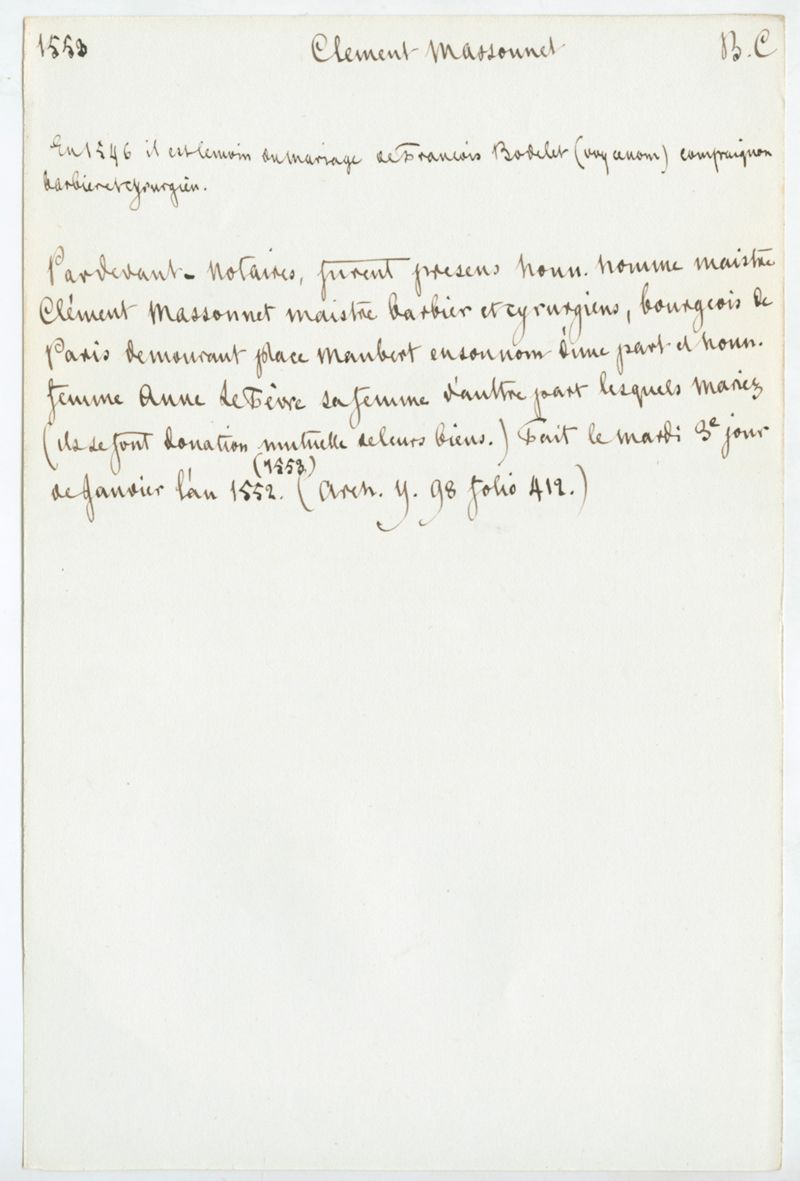 1553 Clément Massonnet B. C
En 1546 il est temoin du mariage de François Bodelet (voy ce nom) compaignon
barbier et cyrurgien.
Pardevant - Notaires, furent presens honn. homme maistre
Clément Massonnet maistre barbier et cyrurgiens, bourgeois de
Paris demourant place Maubert en son nom d'une part et honn.
femme Anne LeFèvre sa femme d'aultre part lesquels Mariez
(ils se font donation mutuelle de leurs biens.) Fait le mardi 3e jour
(1553)
de Janvier l'an 1552. (Arch. Y. 98 folio 412.)